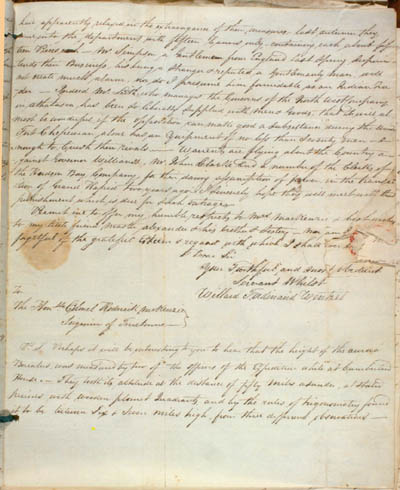 have apparently relaxed in the extravagance of their measures last autumn they
into the department with fifteen Canoes only containing each about
Mr Simpson a Gentleman from England last Spring
tends their Business, his being a stranger & reputed a Gentlemanly man will
not create much alarm, nor do I presume him formidable as an Indian Tra
der — Indeed Mr Leith who manages the Concerns of the North West Company
in Athabasca has been so liberally supplied with Goods, that it will al
most be wonderful if the opposition can make good a subsistance during the winter
Fort Chepewian alone has an Equipment of no less than Seventy
nough to Crush their rivals — Warrants are flying about the Country a
gainst Governor Williams, Mr John Clarke and a number of the Clerks of
the Hudson Bay Company for their daring
of Grand Rapid two years ago & I sincerely hope they will meet with the
punishment which is due for such outrages
Permit me to offer my humble respects to Mrs
to my little friend Master Alexander & his brother & Sister
of the grateful Esteem & regard with which I shall
Sir
Your Faithful and most obedient
Servant Whilst
Willard Ferdinand Wentzel
To
The Honble Colonel Roderick McKenzie
Seigneur of Terrebonne —
P.S. Perhaps it will be interesting to you to hear that the height of the aurora
Borealis was measured by two of the officers of the Expedition while at Cumberland
House — They took its altitude at the distance of fifty miles asunder, at stated
periods with wooden Quadrants and by the rules of trigonometry found
it to be between Six & Seven miles high from three different observations —